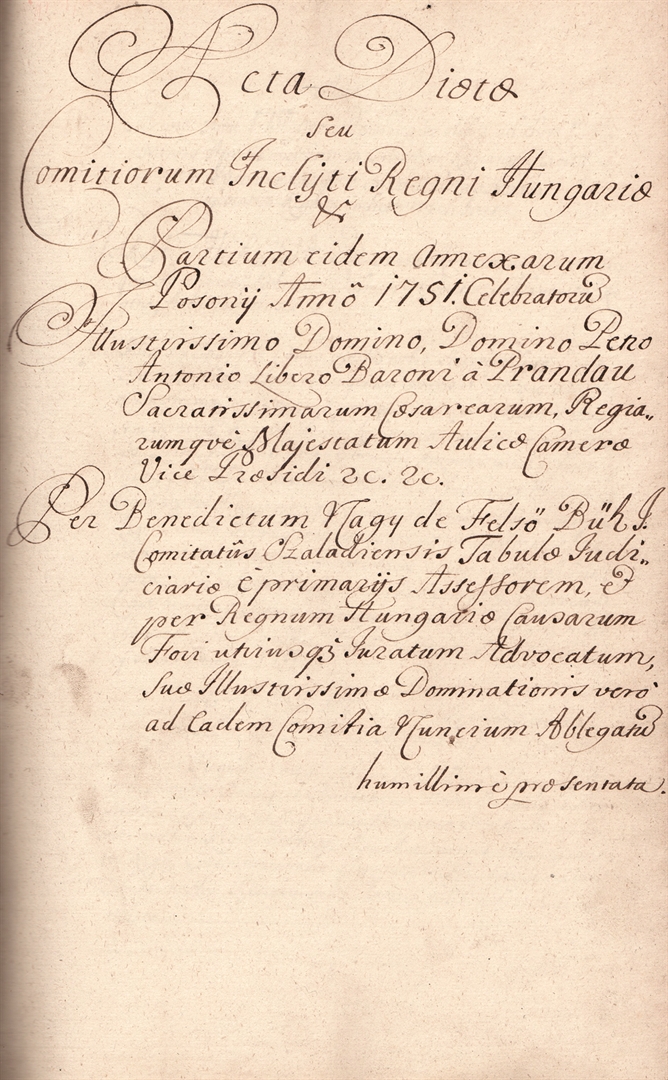 Acta Diætæ
seu
Comitiorum Inclÿti Regni Hungariæ
&
Partium eidem Annexarum
Posonÿ Annô 1751. Celebratorũ
Illustrissimo Domino, Domino Petro
Antonio Libero Baroni à Prandau
Sacratissimarum Cæsarearum, Regia„
rumqvè Majestatum Aulicæ Cameræ
Vice Præsidi &c. &c.
Per Benedictum Nagy de Felsö Bük I.
Comitatûs Szaladiensis Tabulæ Judi„
ciariæ è primarÿs Assessorem, &
per Regnum Hungariæ Causarum
Fori utriusq3 Juratum Advocatum,
Suæ Illustrissimæ Dominationis verò
ad Eadem Comitia Nuncium Ablegatũ
humillimè præsentata.